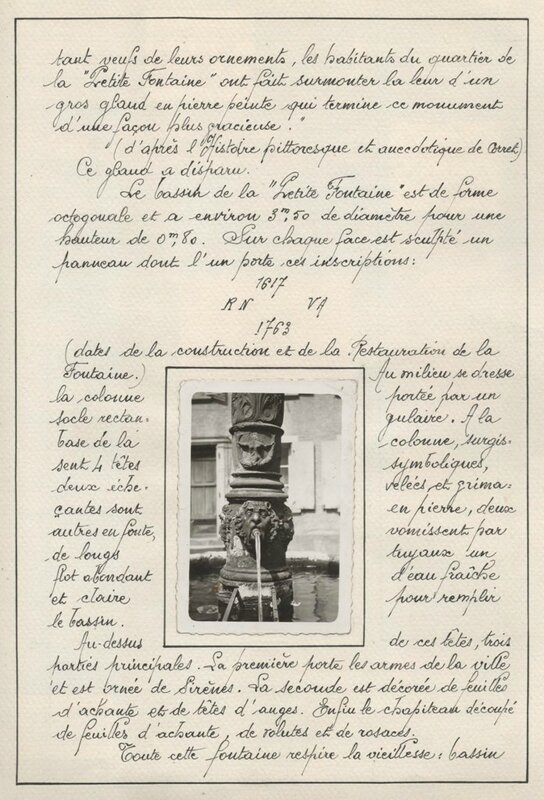 tant veufs de leurs ornements, les habitants du quartier de
la "Petite Fontaine" ont fait surmonter la leur d'un
gros gland en pierre peinte qui termine ce monument
d'une façon plus gracieuse."
(d'après l'Histoire pittoresque et anecdotique de Corret)
Ce gland a disparu.
Le bassin de la "Petite Fontaine" est de forme
octogonale et a environ 3m,50 de diamètre pour une
hauteur de 0m,80. Sur chaque face est sculpté un
panneau dont l'un porte ces inscriptions:
1617
RN VA
1763
(dates de la construction et de la Restauration de la
Fontaine.) Au milieu se dresse
la colonne portée par un
socle rectan- gulaire. A la
base de la colonne, surgis-
sent 4 têtes symboliques,
deux éche- velées, et grima-
çantes sont en pierre, deux
autres en fonte, vomissent par
de longs tuyaux un
flot abondant d'eau fraîche
et claire pour remplir
le bassin.
Au-dessus de ces têtes, trois
parties principales. La première porte les armes de la ville
et est ornée de Sirènes. La seconde est décorée de feuilles
d'achante et de têtes d'anges. Enfin le chapiteau découpé
de feuilles d'achante, de volutes et de rosaces.
Toute cette fontaine respire la vieillesse: bassin